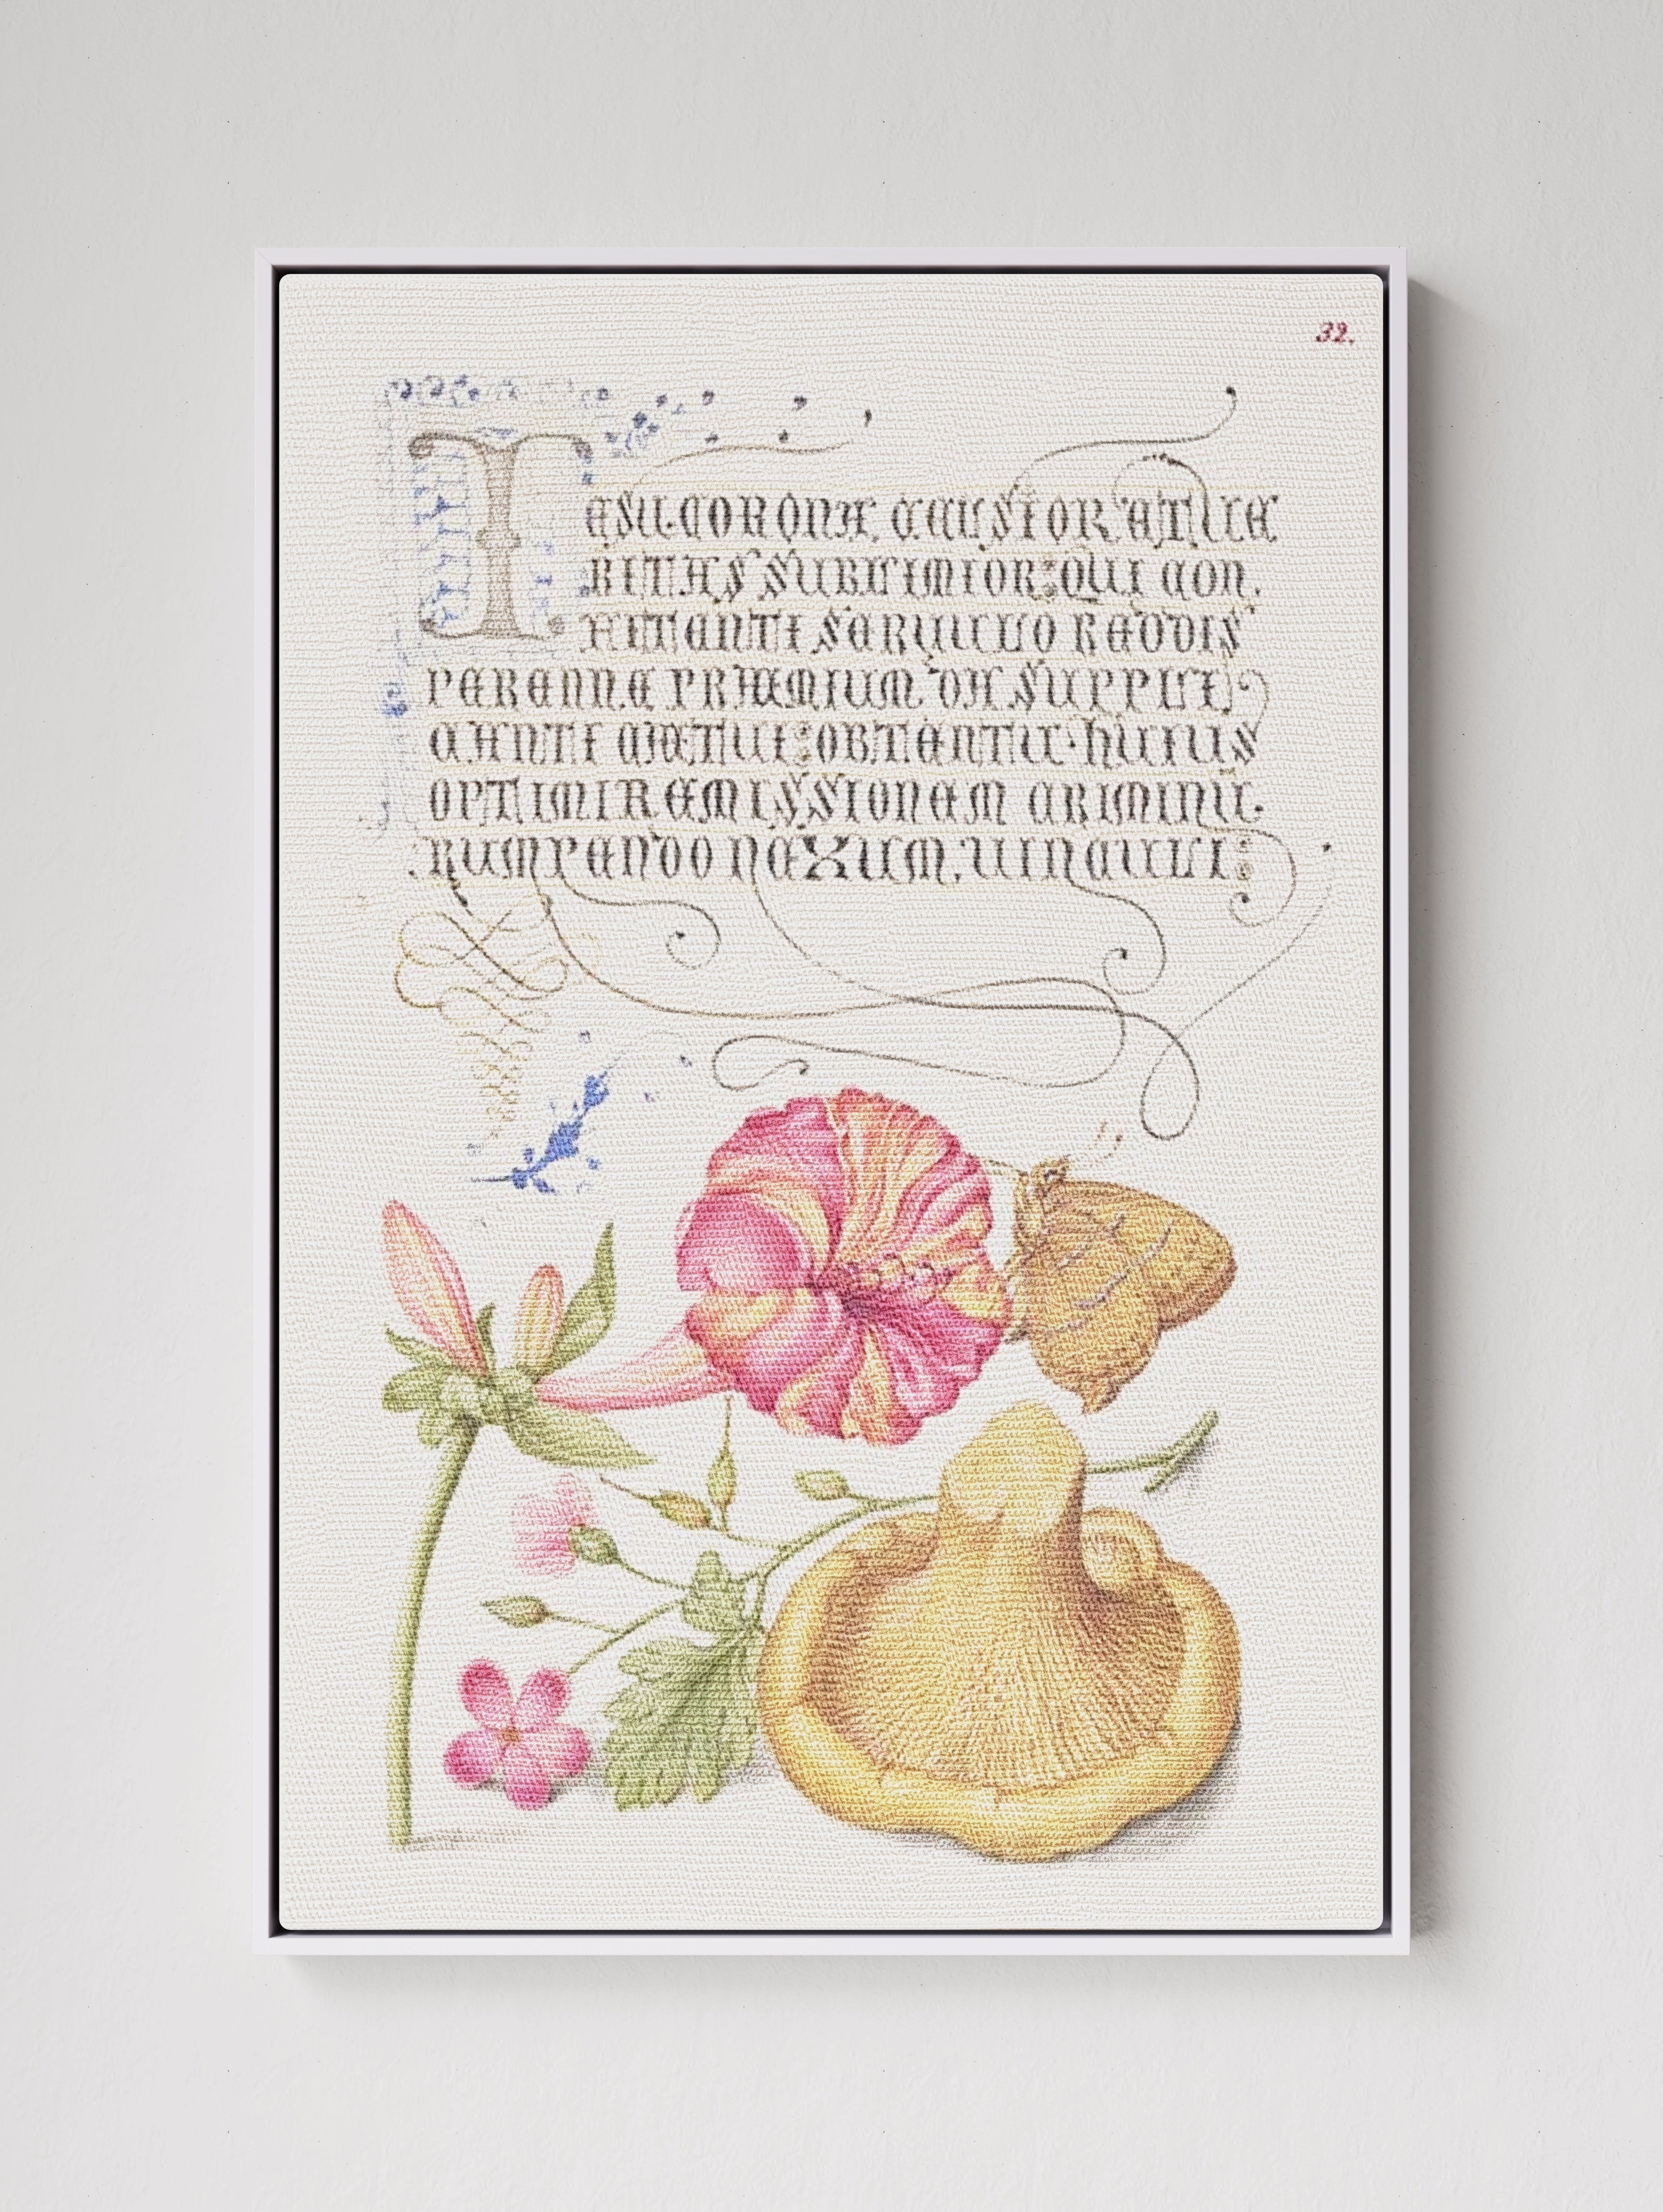 32.
IESU CORONA CELSIOR ET UE
RITAS SUBLIMIOR: QUI CON.
FITENTI SERUULO REDDIS
PERENNE PRÆMIUM. DA SUPPLI
CANTI CŒTUI: OBTENTU HUIUS
OPTIMI REMISSIONEM CRIMINU.
RUMPENDO NEXUM UINCULI: